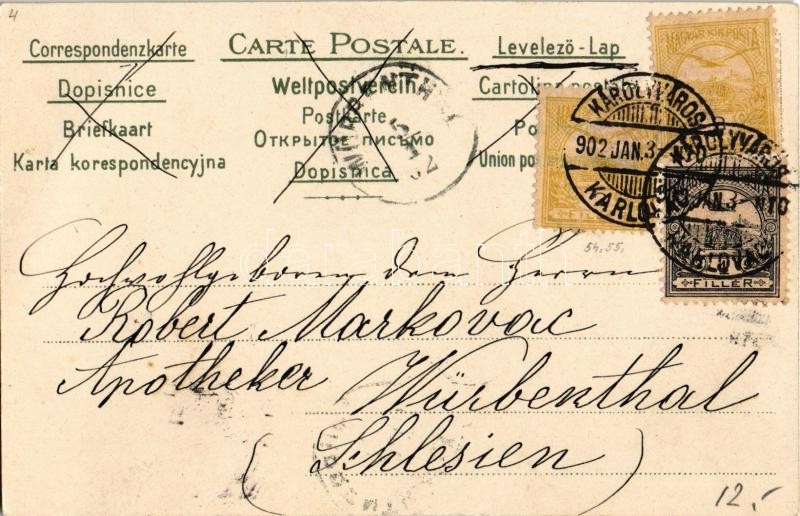 4
Correspondenzkarte
CARTE POSTALE.
Levelezö-Lap
Dopisnice
Weltpostverein
Cartolina
Briefkaart
Postkarte
Karta korespondencyjna
Открытое письмо
Union
Dopisnica
MAGYAR KIR. POSTA
KÁROLYVÁROS
902 JAN. 3
KARLOVAC
FILLÉR
54,55,
darabanth
Hochwohlgeboren dem Herrn
Robert Markovac
Apotheker
Würbenthal
(Schlesien)
12,-